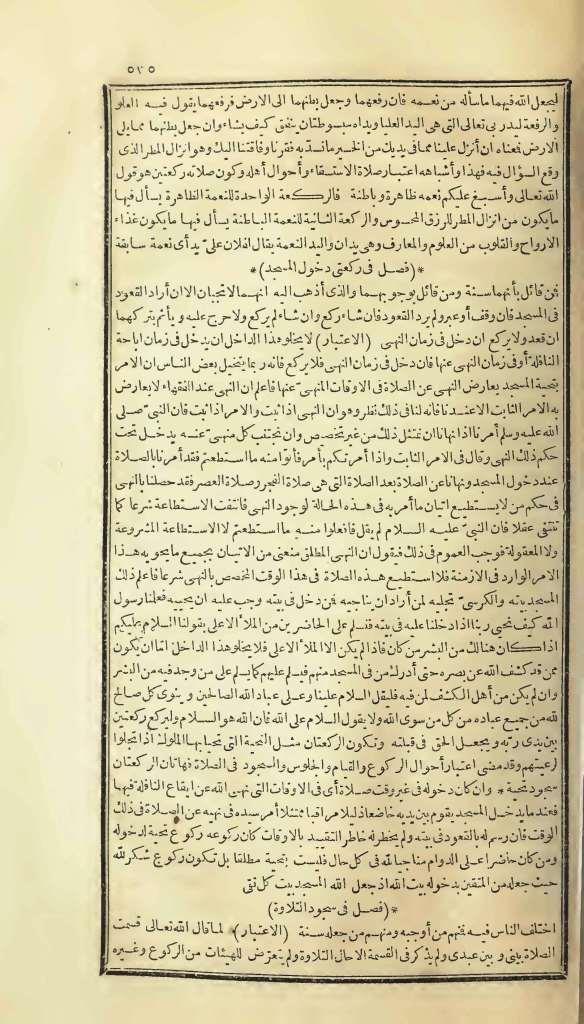 ٥٢٥
ليجعل الله فيهما ما سأله من نعمه فان رفعهما وجعل بطنهما الى الارض فرفعهما يقول فيه العلو
والرفعة ليد ربى تعالى التى هى اليد العليا ويداه مبسوطتان ينفق كيف يشاء وان جعل بطنهما مما يلى
الارض فمعناه ان أنزل علينا مما فى يديك من الخير ما تسد به فقرنا وفاقتنا اليك وهو انزال المطر الذى
وقع السؤال فيه فهذا وأشباهه اعتبار صلاة الاستسقاء وأحوال أهله وكون صلاته ركعتين هو قول
الله تعالى وأسبغ عليكم نعمه ظاهرة وباطنة فالركعة الواحدة للنعمة الظاهرة يسأل فيها
ما يكون من انزال المطر للرزق المحسوس والركعة الثانية للنعمة الباطنة يسأل فيها ما يكون غذاء
الارواح والقلوب من العلوم والمعارف وهى يدان واليد النعمة يقال لفلان علىّ يد أى نعمة سابقة
*(فصل فى ركعتى دخول المسجد)*
فمن قائل بأنهما سنة ومن قائل بوجوبهما والذى أذهب اليه انهما لا تجبان الا ان أراد القعود
فى المسجد فان وقف أو عبر ولم يرد القعود فان شاء ركع وان شاء لم يركع ولا حرج عليه ويأثم بتركهما
ان قعد ولا يركع ان دخل فى زمان النهى (الاعتبار) لا يخلو هذا الداخل ان يدخل فى زمان اباحة
النافلة أو فى زمان النهى عنها فان دخل فى زمان النهى فلا يركع فانه ربما يتخيل بعض الناس ان الامر
بتحية المسجد يعارض النهى عن الصلاة فى الاوقات المنهى عنها فاعلم ان النهى عند الفقهاء لا يعارض
به الامر الثابت الا عندنا فانه لنا فى ذلك نظر وهو ان النهى اذا ثبت والامر اذا ثبت فان النبى صلى
الله عليه وسلم أمرنا اذا نهانا ان نمتثل ذلك من غير تخصيص وان نجتنب كل منهى عنه يدخل تحت
حكم ذلك النهى وقال فى الامر الثابت واذا أمرتكم بأمر فأتوا منه ما استطعتم فقد أمرنا بالصلاة
عند دخول المسجد ونهانا عن الصلاة بعد الصلاة التى هى صلاة الفجر وصلاة العصر فقد حصلنا بالنهى
فى حكم من لا يستطيع اتيان ما أمر به فى هذه الحالة لوجود النهى فانتفت الاستطاعة شرعا كما
تنتفى عقلا فان النبى عليه السلام لم يقل فافعلوا منه ما استطعتم لا الاستطاعة المشروعة
ولا المعقولة فوجب العموم فى ذلك فيقول ان النهى المطلق منعنى من الاتيان بجميع ما يحويه هذا
الامر الوارد فى الازمنة فلا استطيع هذه الصلاة فى هذا الوقت المخصص بالنهى شرعا فاعلم ذلك
المسجد بيته والكرسى تجليه لمن أراد ان يناجيه فمن دخل فى بيته وجب عليه ان يحييه فعلمنا رسول
الله كيف نحيى ربنا اذا دخلنا عليه فى بيته فنسلم على الحاضرين من الملأ الاعلى بقولنا السلام عليكم
اذا كان هنالك من البشر من كان فاذا لم يكن الا الملأ الاعلى فلا يخلو هذا الداخل اما ان يكون
ممن قد كشف الله عن بصره حتى أدرك من فى المسجد منهم فيسلم عليهم كما يسلم على من وجد فيه من البشر
وان لم يكن من أهل الكشف لمن فيه فليقل السلام علينا وعلى عباد الله الصالحين وينوى كل صالح
لله من جميع عباده من كل من سوى الله ولا يقول السلام على الله فان الله هو السلام وليركع ركعتين
بين يدى ربه ويجعل الحق فى قبلته وتكون الركعتان مثل التحية التى تحيا بها الملوك اذا تجلوا
لرعيتهم وقد مضى اعتبار أحوال الركوع والقيام والجلوس والسجود فى الصلاة فهاتان الركعتان
سجود تحية * وان كان دخوله فى غير وقت صلاة أى فى الاوقات التى نهى الله عن ايقاع النافلة فيها
فعند ما يدخل المسجد يقوم بين يديه خاضعا ذليلا مراقبا ممتثلا أمر سيده فى نهيه عن الصلاة فى ذلك
الوقت فان رسم له بالقعود فى بيته ولم يخطر له خاطر التقييد بالاوقات كان ركوعه ركوع تحية لدخوله
ومن كان حاضرا على الدوام مناجيا لله فى كل حال فليست بتحية مطلقا بل تكون ركوع شكر لله
حيث جعله من المتقين بدخوله بيت الله اذ جعل الله المسجد بيت كل تقى
*(فصل فى سجود التلاوة)*
اختلف الناس فيه فمنهم من أوجبه ومنهم من جعله سنة (الاعتبار) لما قال الله تعالى قسمت
الصلاة بينى وبين عبدى ولم يذكر فى القسمة الا حال التلاوة ولم يتعرّض للهيئات من الركوع وغيره